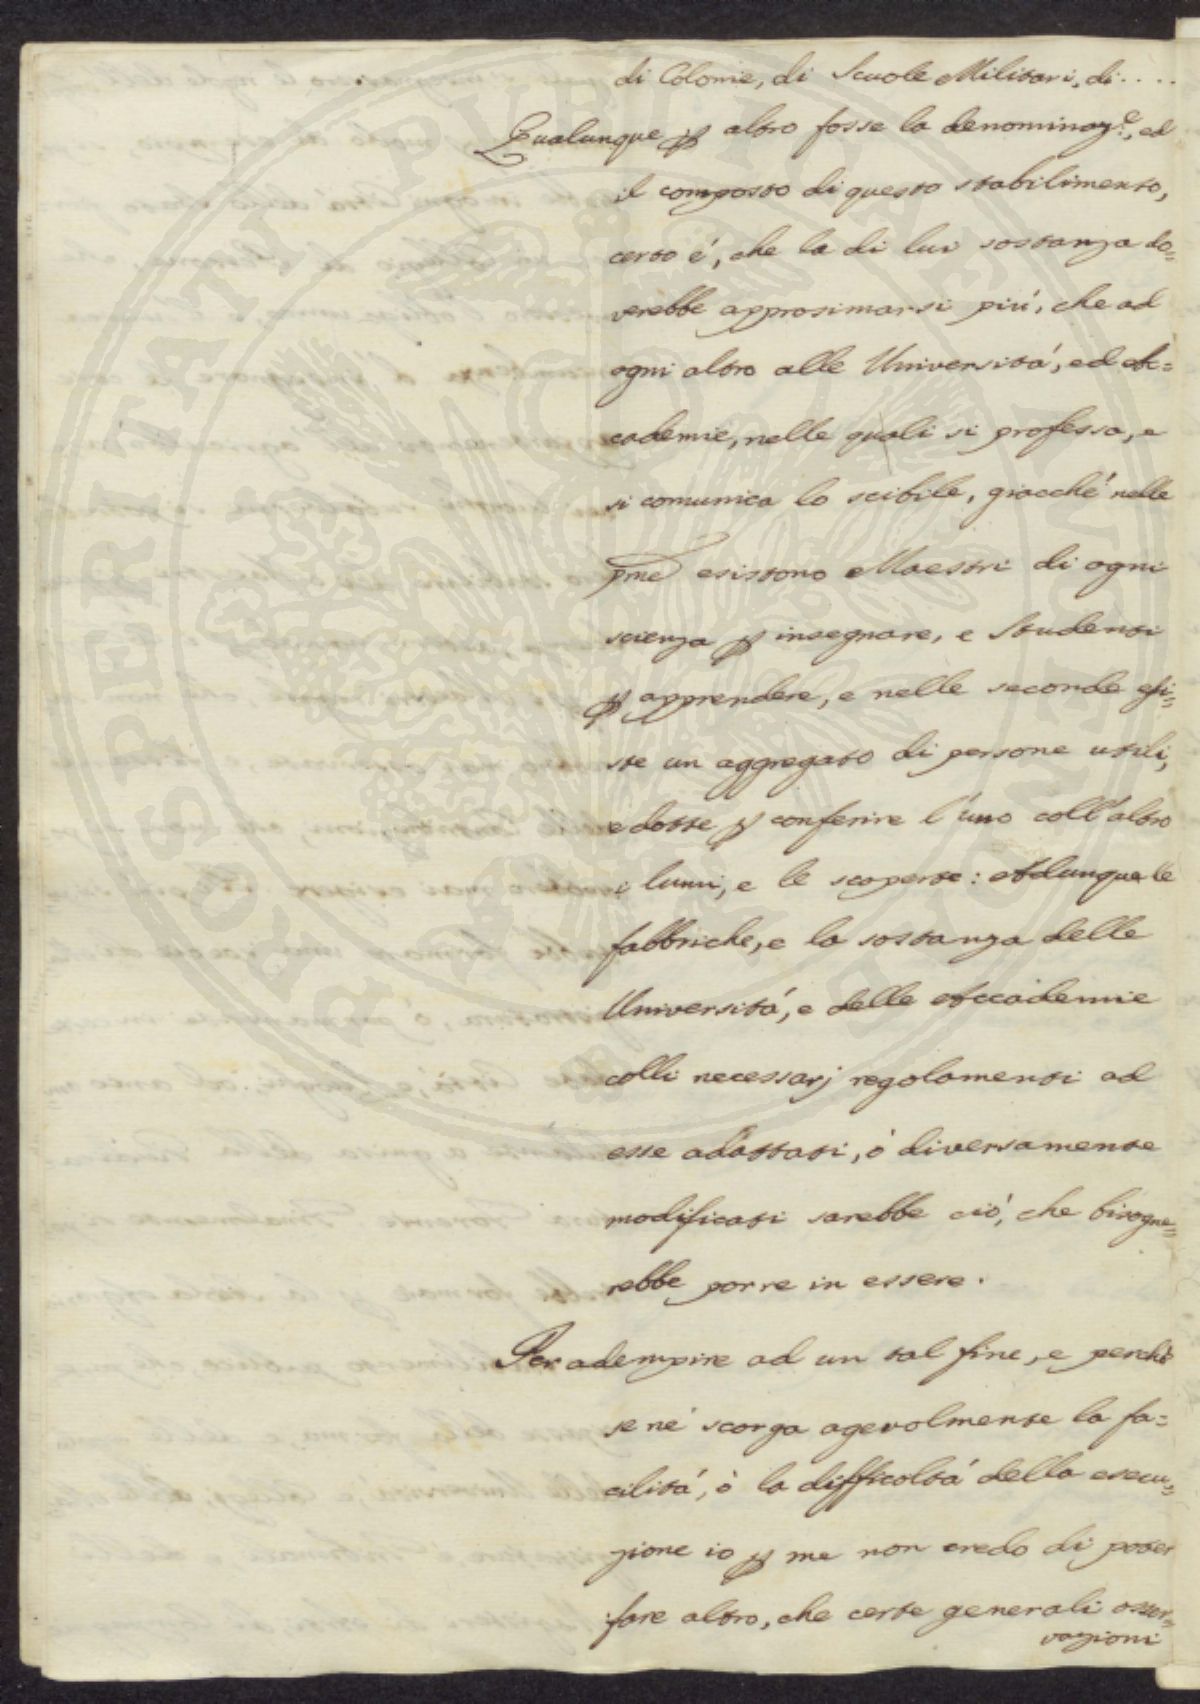 di Colonie, di Scuole Militari, di....
Qualunque p altro fosse la denominaz.e, ed
il composto di questo stabilimento,
certo é, che la di lui sostanza do=
verebbe approsimarsi piú, che ad
ogni altro alle Universitá, ed Ac=
cademie, nelle quali si professa, e
si comunica lo scibile, giacché nelle
pme esistono Maestri di ogni
scienza p insegnare, e Studenti
p apprendere, e nelle seconde esi=
ste un aggregato di persone utili,
e dotte p conferire l'uno coll'altro
i lumi, e le scoperte: Adunque le
fabbriche, e la sostanza delle
Universitá, e delle Accademie
colli necessarj regolamenti ad
esse adattati, ó diversamente
modificati sarebbe ció, che bisogne=
rebbe porre in essere.
Per adempire ad un tal fine, e perché
se né scorga agevolmente la fa=
cilitá, ó la difficoltá della esecu=
zione io p me non credo di poter
fare altro, che certe generali osser=
vazioni
PROSPERITATI PUBLICAE AUGENDAE